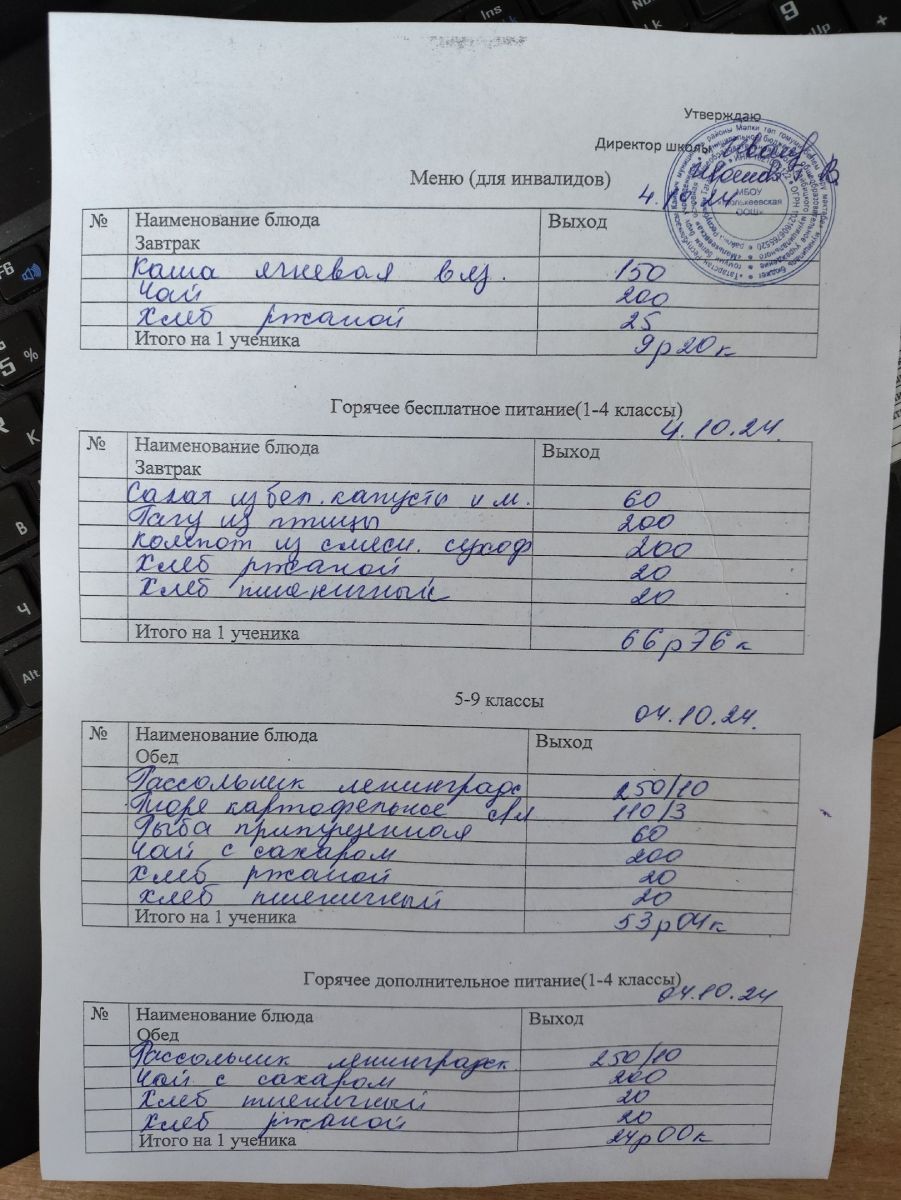 Утверждаю
Директор школы
4.10.24
МБОУ
Меню (для инвалидов)
№ Наименование блюда Выход
Завтрак
Каша ячневая вяз. 150
Чай 200
Хлеб ржаной 25
Итого на 1 ученика 9р20к
Горячее бесплатное питание(1-4 классы)
4.10.24.
№ Наименование блюда Выход
Завтрак
Салат из бел. капусты и м. 60
Рагу из птицы 200
Компот из смеси. сухоф 200
Хлеб ржаной 20
Хлеб пшеничный 20
Итого на 1 ученика 66р76к
5-9 классы
04.10.24.
№ Наименование блюда Выход
Обед
Рассольник ленинградс 250/10
Пюре картофельное 110/3
Рыба припущенная 60
Чай с сахаром 200
Хлеб ржаной 20
Хлеб пшеничный 20
Итого на 1 ученика 53р04к
Горячее дополнительное питание(1-4 классы)
04.10.24
№ Наименование блюда Выход
Обед
Рассольник ленинградск. 250/10
Чай с сахаром 200
Хлеб пшеничный 20
Хлеб ржаной 20
Итого на 1 ученика 24р00к